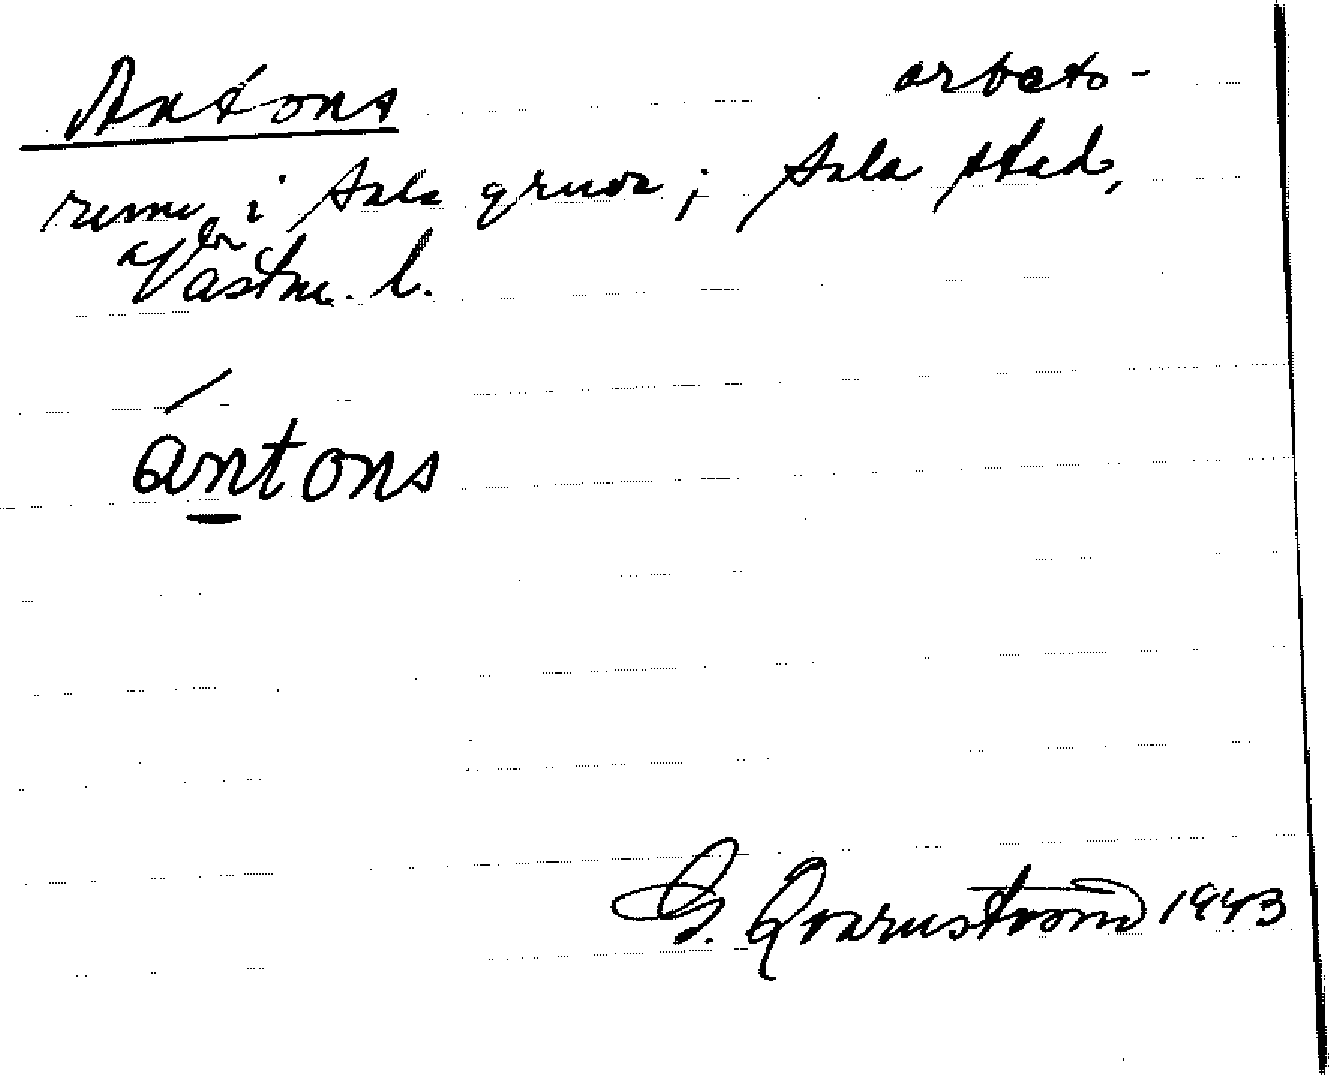 Antons arbets-
rum i Sala gruva; Sala stad,
Västm. l.
än
ántons
G. Qvarnström 1943